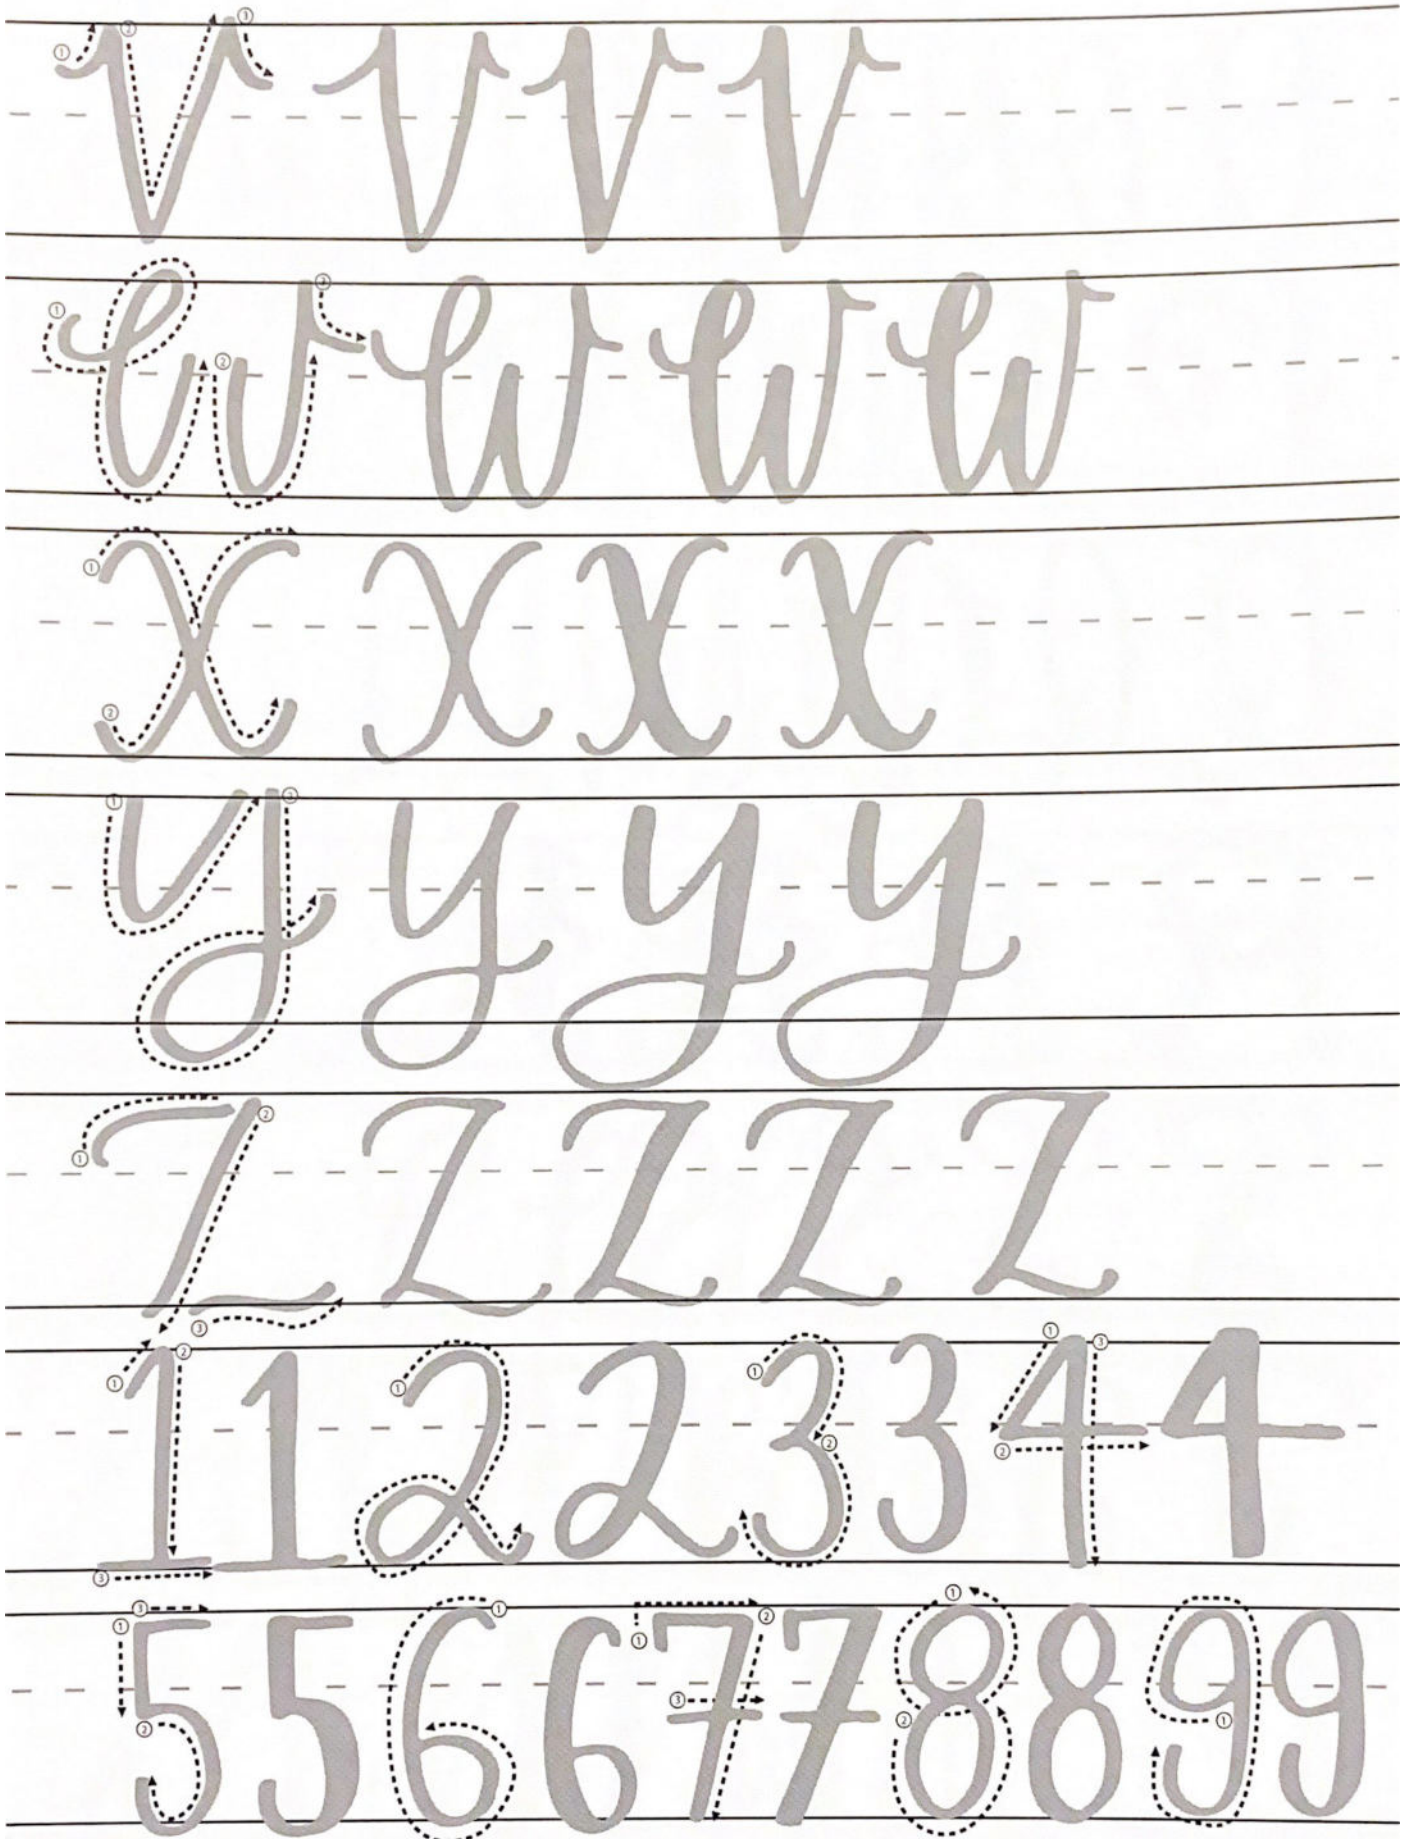 V V V V
W W W W
X X X X
Y Y Y Y
Z Z Z Z Z
1 1 2 2 3 3 4 4
5 5 6 6 7 7 8 8 9 9